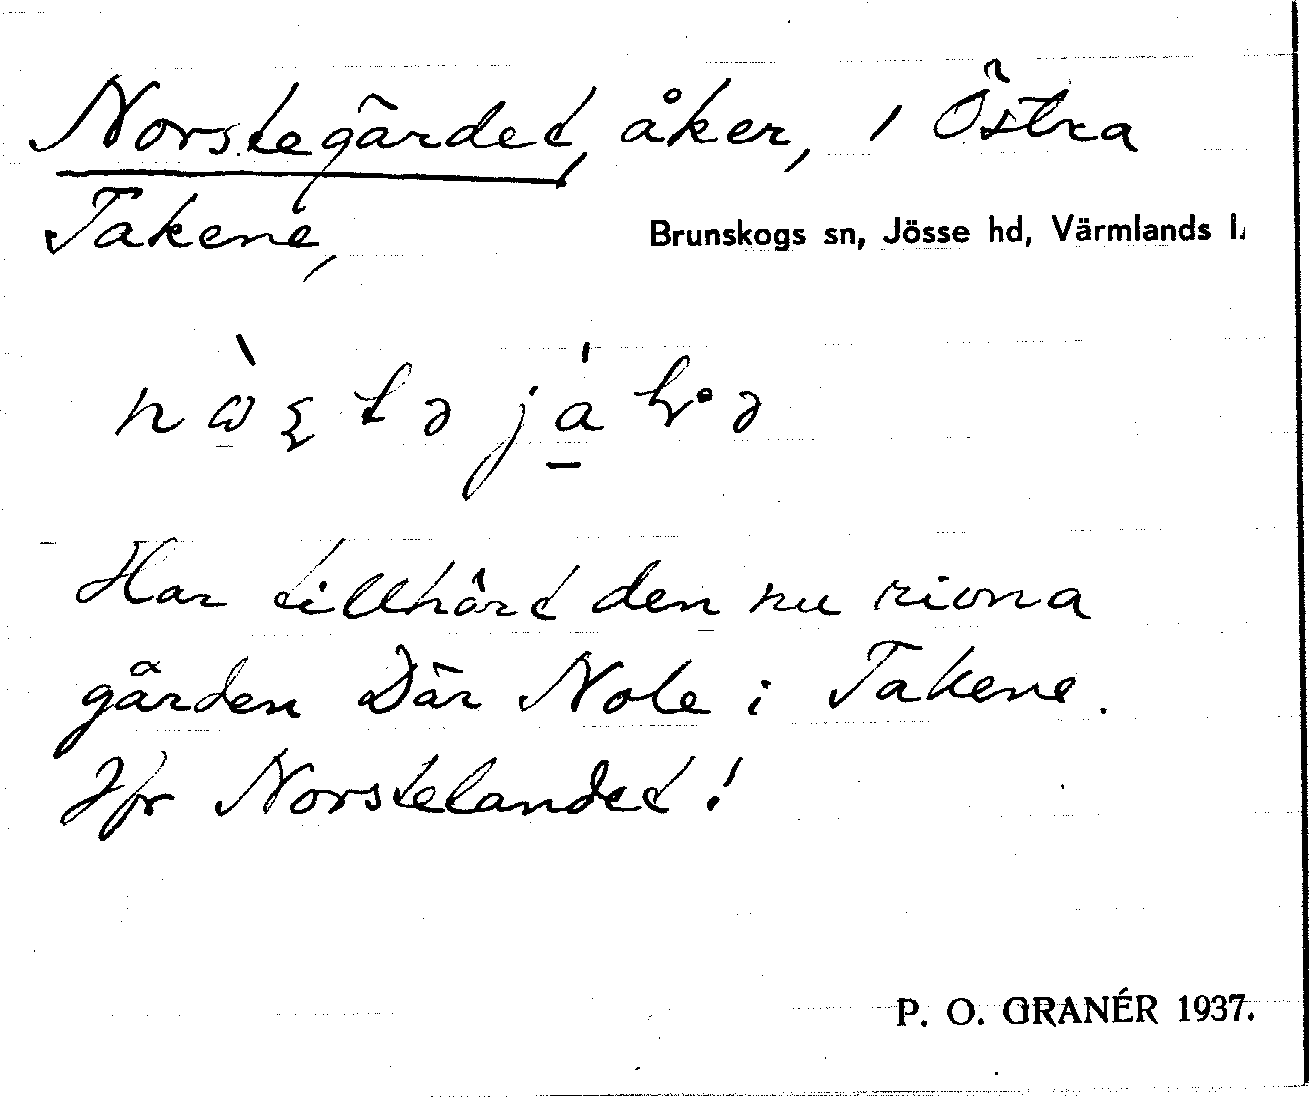 Norstegärdet, åker, i Östra
Takene,
Brunskogs sn, Jösse hd, Värmlands l.
Har tillhört den nu rivna
gården Där Nole i Takene.
Jfr Norstelandet!
P. O. GRANÉR 1937.